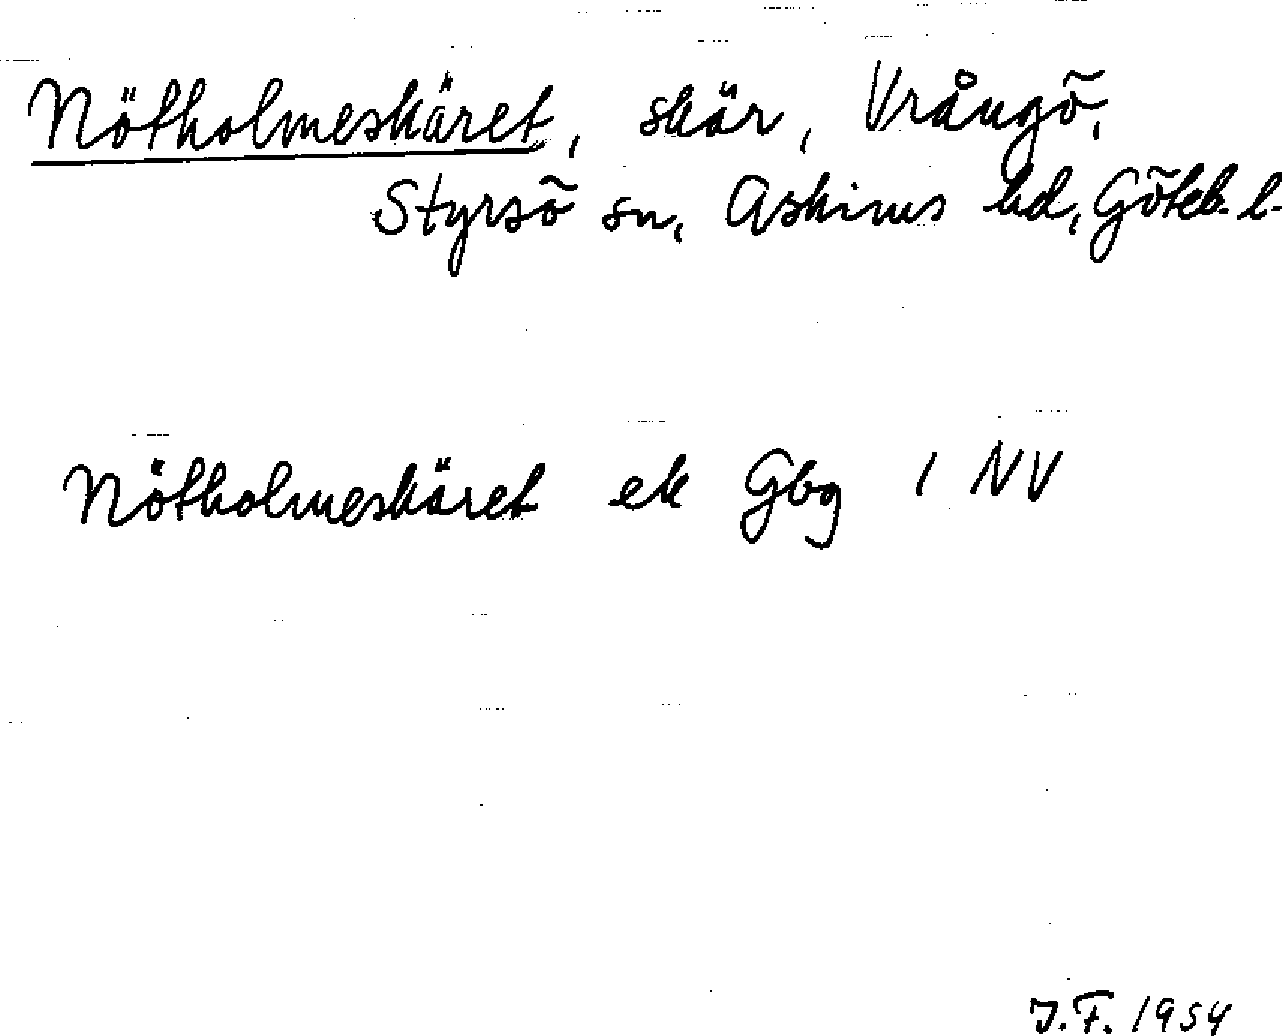 Nötholmeskäret, skär, Vrångö,
Styrsö sn, Askims hd, Göteb. l.
Nötholmeskäret ek Gbg 1 NV
J.F. 1954